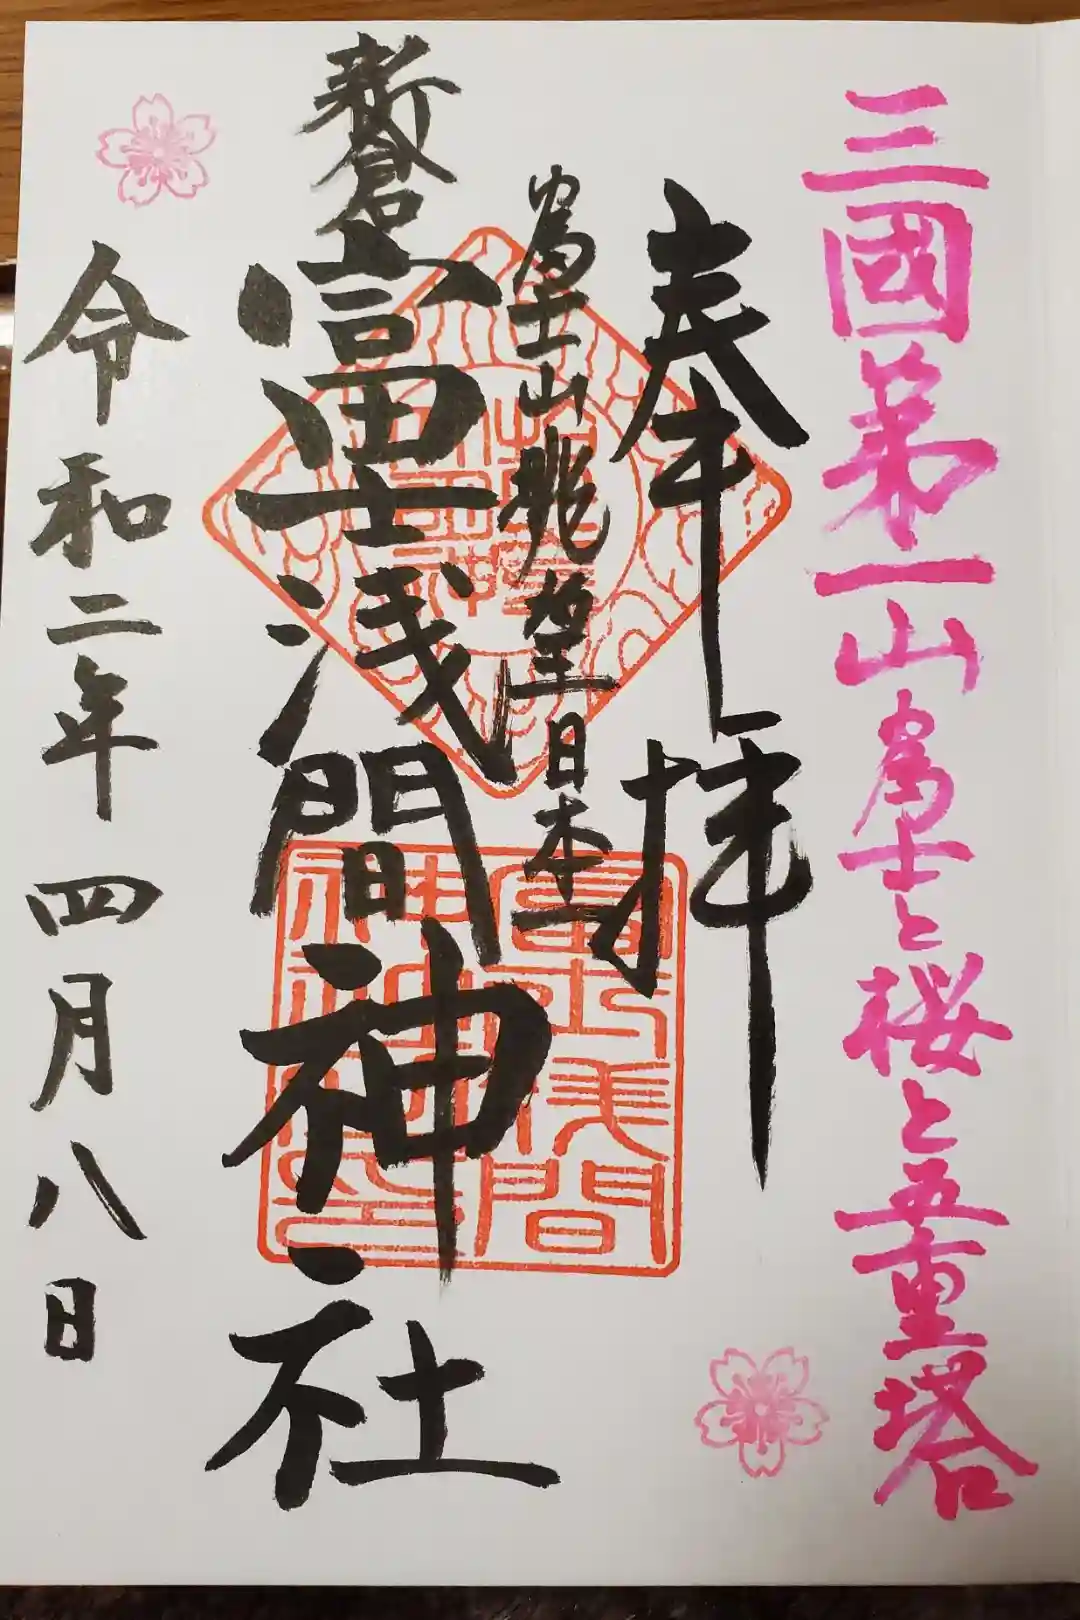 三國第一山富士と桜と五重塔
奉拝
富士山眺望日本一
新倉富士浅間神社
令和二年四月八日
富士浅間